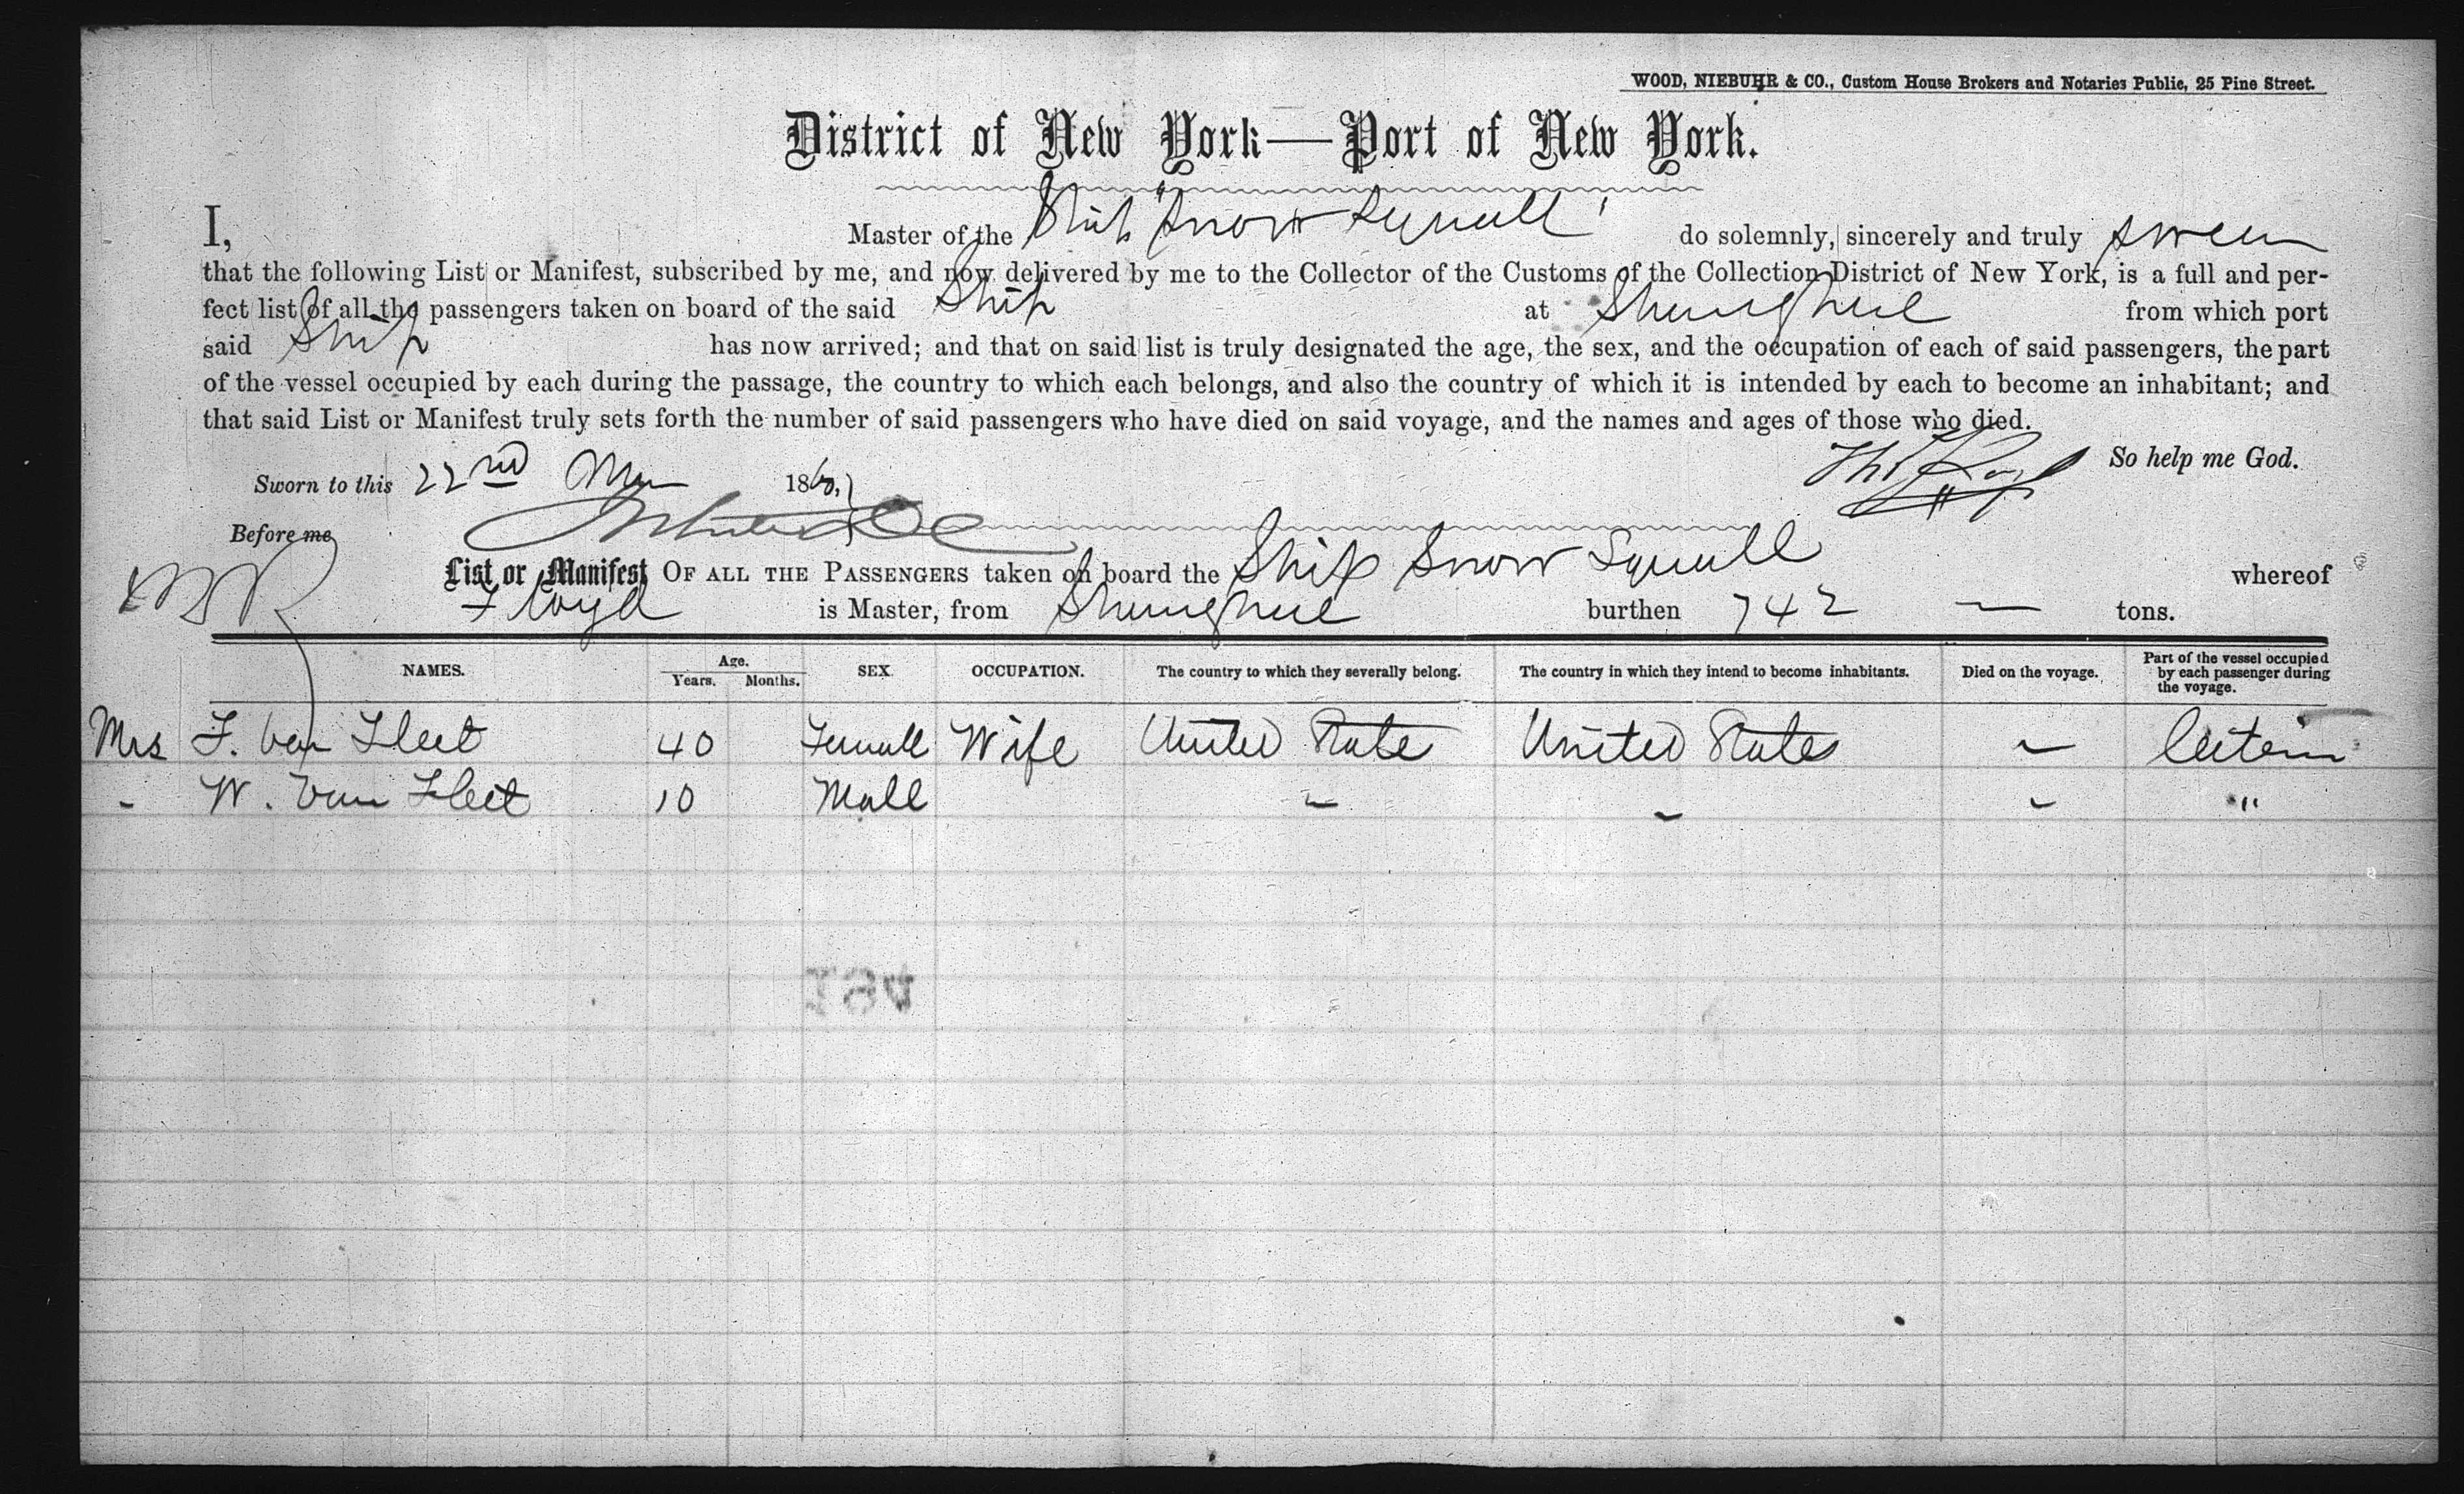 WOOD, NIEBUHR & CO., Custom House Brokers and Notaries Public, 25 Pine Street.
District of New York—Port of New York.
I, Master of the Ship "Snow Squall" do solemnly, sincerely and truly swear
that the following List or Manifest, subscribed by me, and now delivered by me to the Collector of the Customs of the Collection District of New York, is a full and per-
fect list of all the passengers taken on board of the said Ship at Shanghae from which port
said Ship has now arrived; and that on said list is truly designated the age, the sex, and the occupation of each of said passengers, the part
of the vessel occupied by each during the passage, the country to which each belongs, and also the country of which it is intended by each to become an inhabitant; and
that said List or Manifest truly sets forth the number of said passengers who have died on said voyage, and the names and ages of those who died.
So help me God.
Sworn to this 22nd 186
Before me
List or Manifest OF ALL THE PASSENGERS taken on board the Ship Snow Squall whereof
Floyd is Master, from Shanghae burthen 742 — tons.
NAMES. Age. Years. Months. SEX. OCCUPATION. The country to which they severally belong. The country in which they intend to become inhabitants. Died on the voyage. Part of the vessel occupied by each passenger during the voyage.
Mrs F. Van Fleet 40 Female Wife United State United States - Cabin
- W. Van Fleet 10 Male - - - "
184